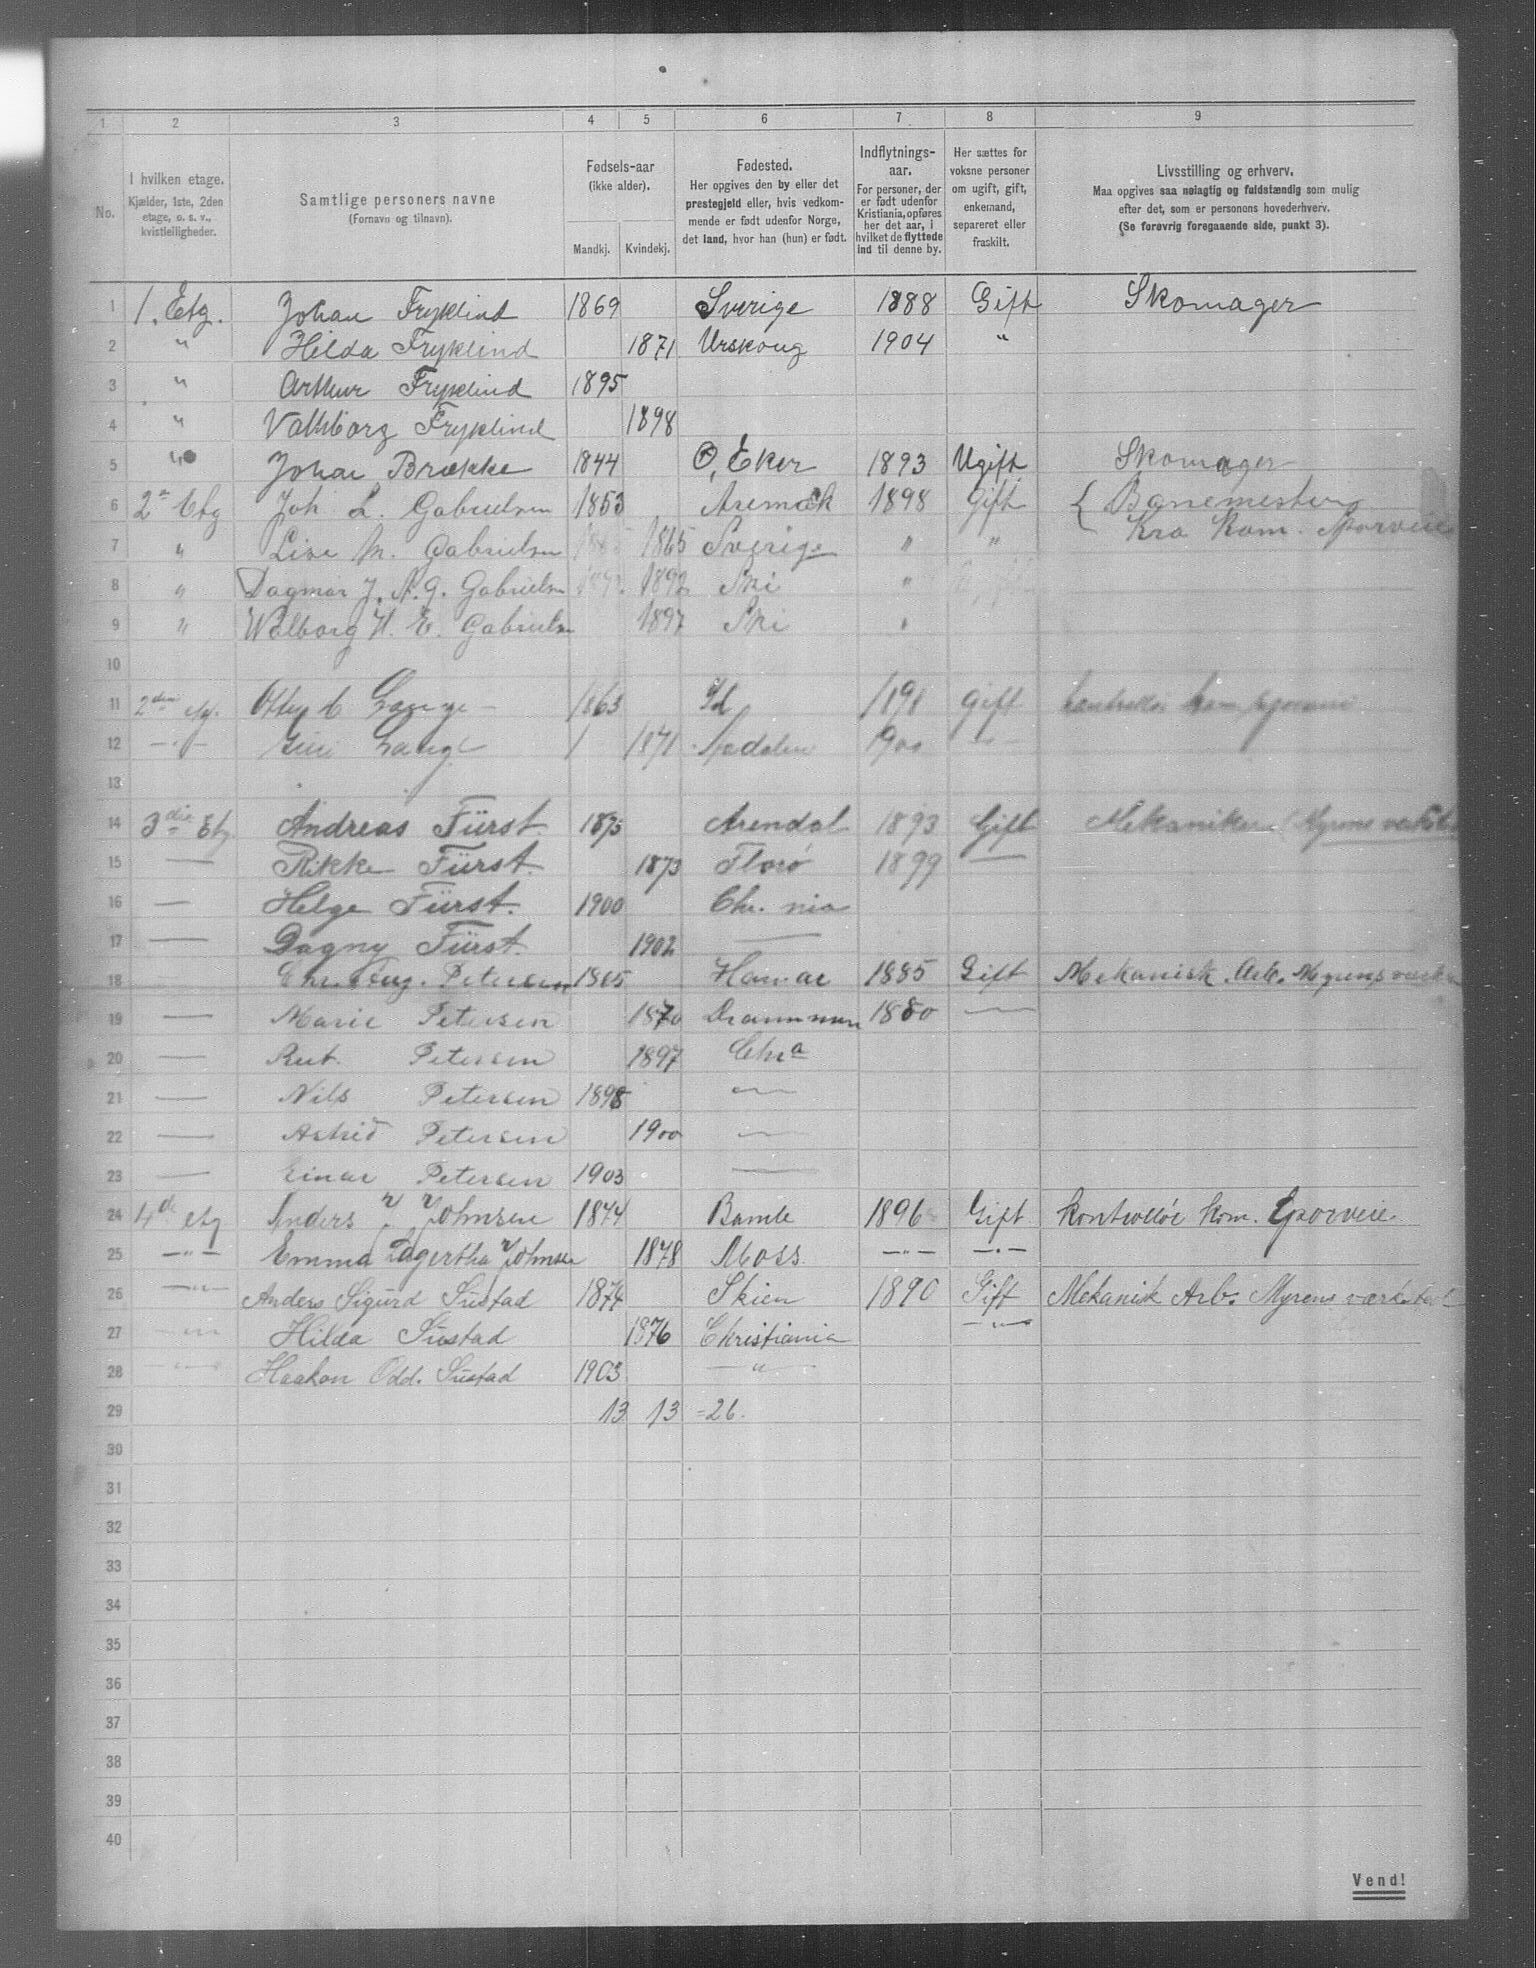 1 2 3 4 5 6 7 8 9
No.
I hvilken etage.
Kjælder, 1ste, 2den
etage, o. s. v.,
kvistleiligheder.
Samtlige personers navne
(Fornavn og tilnavn).
Fødsels-aar
(ikke alder).
Mandkj. Kvindekj.
Fødested.
Her opgives den by eller det
prestegjeld eller, hvis vedkom-
mende er født udenfor Norge,
det land, hvor han (hun) er født.
Indflytnings-
aar.
For personer, der
er født udenfor
Kristiania, opføres
her det aar, i
hvilket de flyttede
ind til denne by.
Her sættes for
voksne personer
om ugift, gift,
enkemand,
separeret eller
fraskilt.
Livsstilling og erhverv.
Maa opgives saa nøiagtig og fuldstændig som mulig
efter det, som er personens hovederhverv.
(Se forøvrig foregaaende side, punkt 3).
1 1. Etg. Johan Fryklind 1869 Sverige 1888 Gift Skomager
2 " Hilda Fryklind 1871 Urskoug 1904 "
3 " Arthur Fryklind 1895
4 " Valhborg Fryklind 1898
5 " Johan Brække 1844 Ø, Eker 1893 Ugift Skomager
6 2n Etg Joh L. Gabrielsen 1853 Aremark 1898 Gift { Banemester
Kra Kom. Sporveie
7 " Live M. Gabrielsen 1865 Sverige " "
8 " Dagmar J. A. G. Gabrielsen 1892 Ski "
9 " Walborg H. E. Gabrielsen 1897 Ski "
10
11 2den etg. Lange 1863 Id 1898 Gift kom sporveie
12 — " — Lange 1871 1900 — " —
13
14 3die Etg. Andreas Fürst. 1875 Arendal 1893 Gift Mekaniker (Myrens verksted
15 — Rikke Fürst. 1873 Florø 1899 —
16 — Helge Fürst. 1900 Chr. nia
17 — Dagny Fürst. 1902 —
18 Chr. Aug. Petersen 1865 Hamar 1885 Gift Mekanisk Arb. Myrens værk
19 — Marie Petersen 1870 Drammen 1880 —
20 — Rut. Petersen 1897 Chra
21 — Nils Petersen 1898 —
22 — Astrid Petersen 1900 —
23 — Einar Petersen 1903 —
24 4de etg Anders J Johnsen 1874 Bamle 1896 Gift Kontrollør kom. Sporveie.
25 — " — Emma Lagertha Johnsen 1878 Moss — " — — " —
26 — " — Anders Sigurd Sustad 1874 Skien 1890 Gift Mekanisk Arb. Myrens værksted
27 — " — Hilda Sustad 1876 Christiania — " —
28 — " — Haakon Odd. Sustad 1903 — " —
29 13 13 = 26.
30
31
32
33
34
35
36
37
38
39
40
Vend!